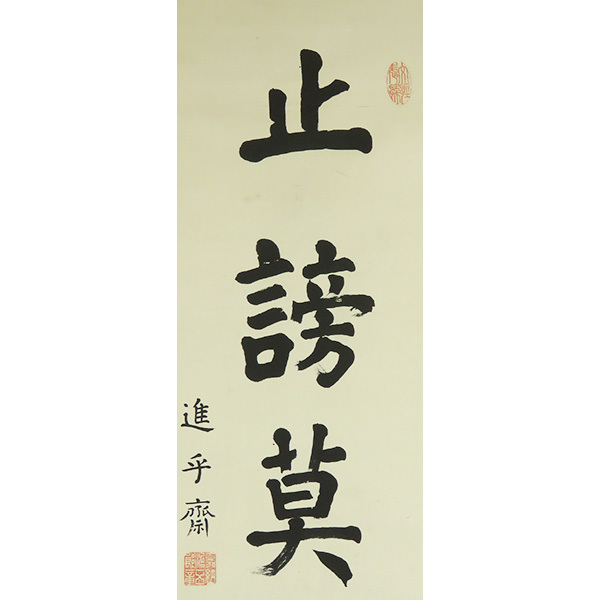 止謗莫
進乎齋